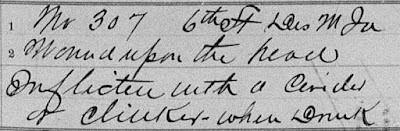 1 No 307 6th St Des M Ia
2 Wound upon the head
Inflicted with a Cinder
or Clinker - when Drunk